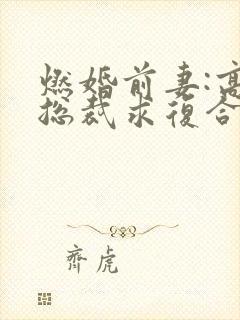 燃婚前妻:高
总裁求復合
齊虎